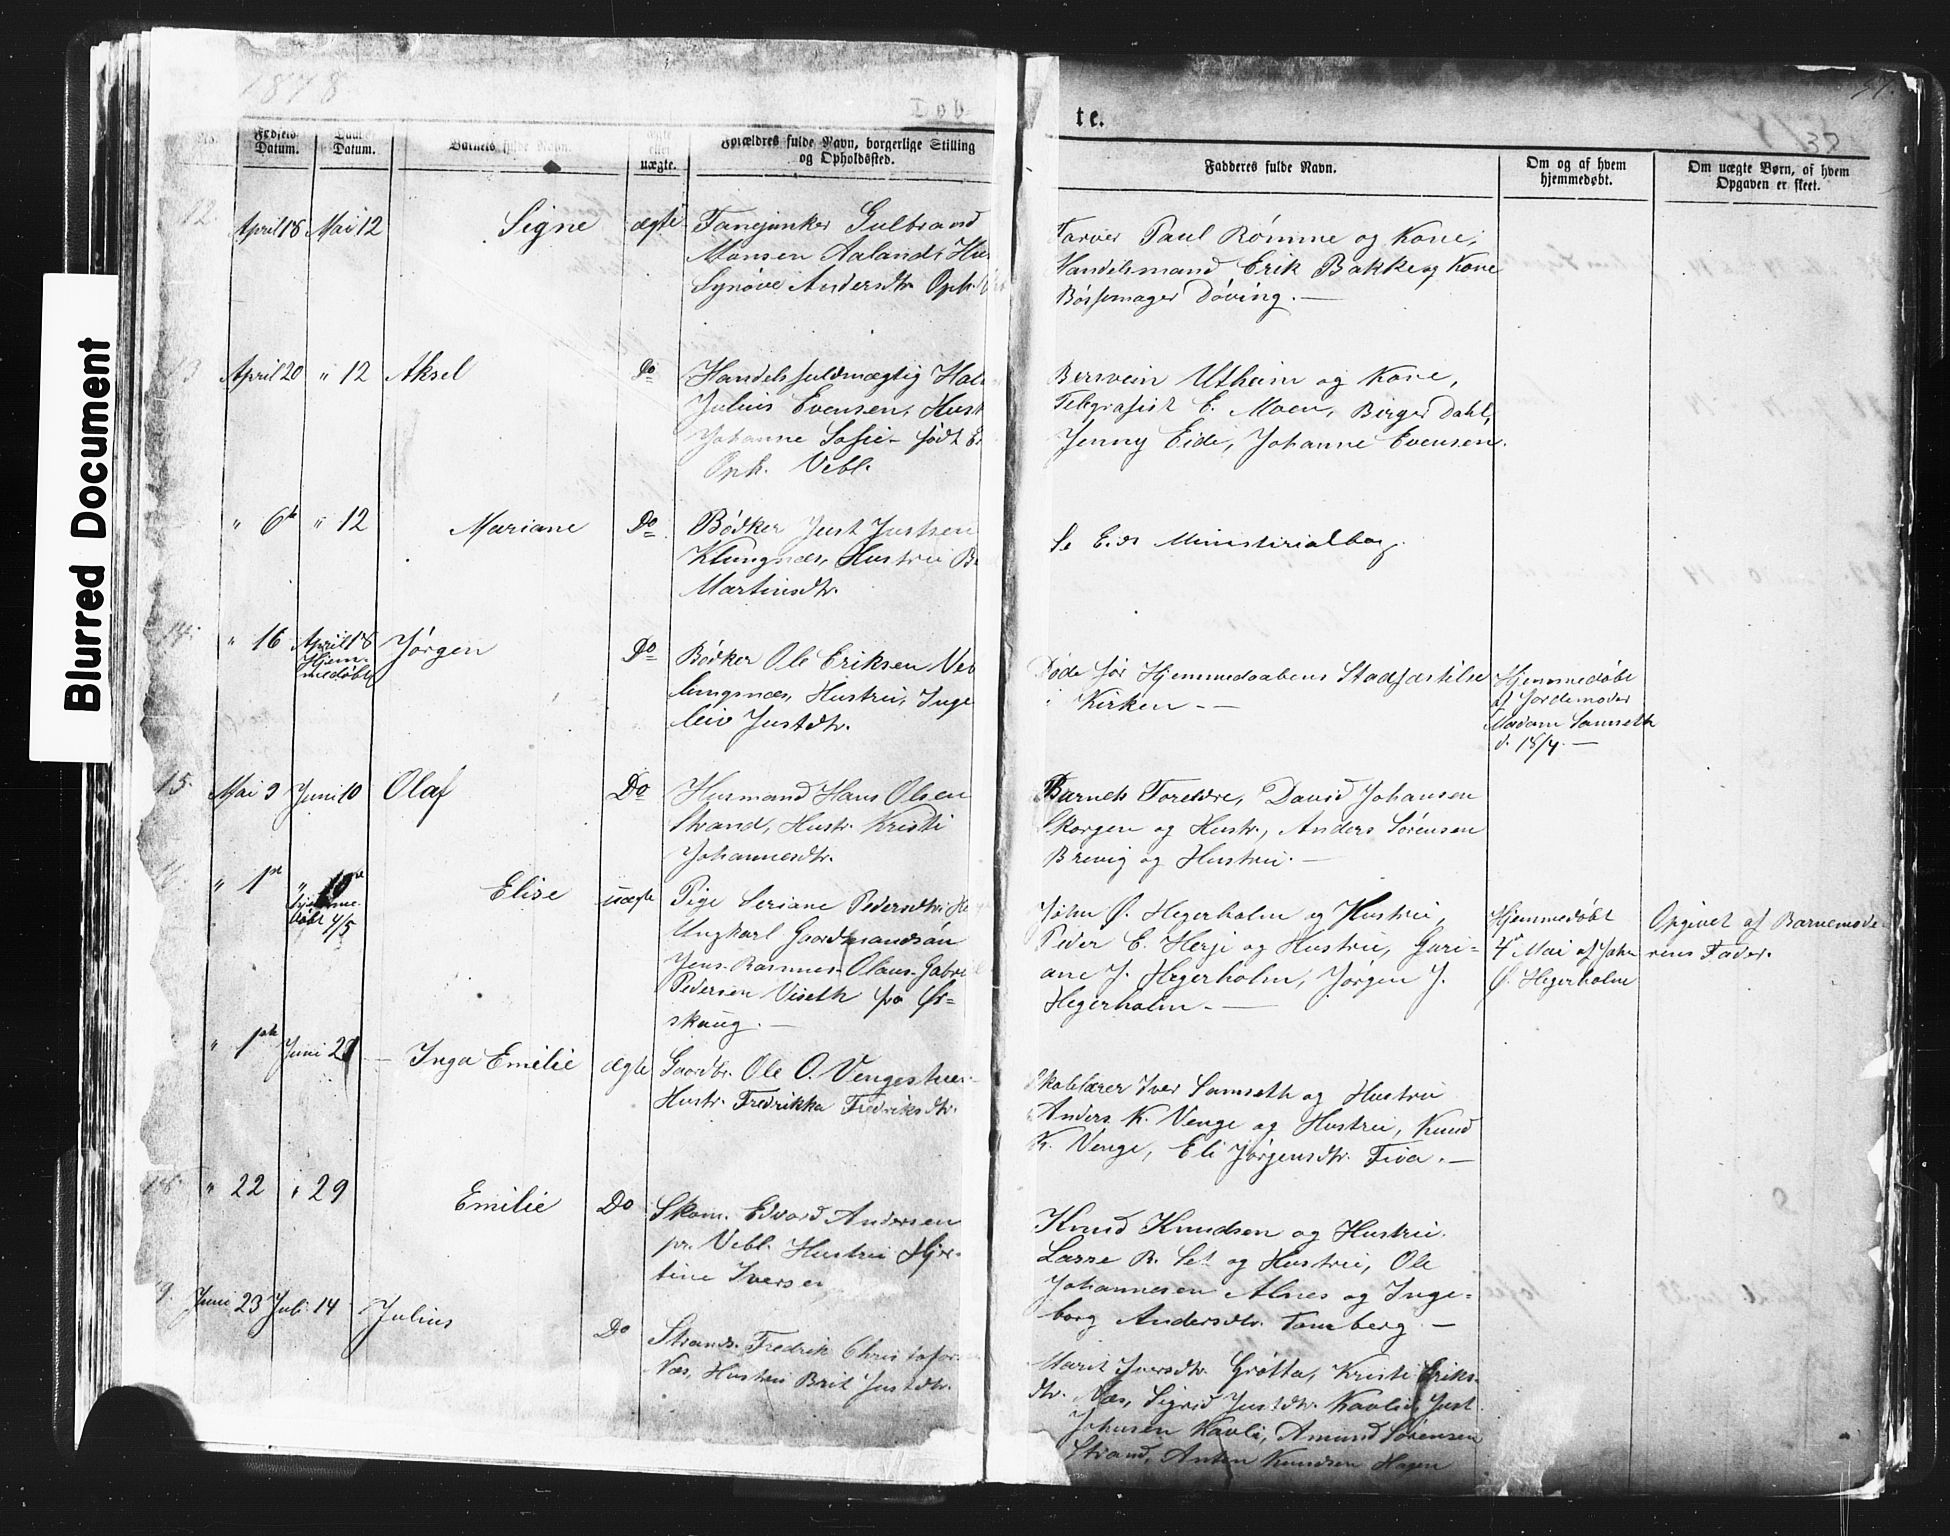 1878.
Døb
te.
37.
32
No.
Fødsels-
Datum.
Daabs-
Datum.
Barnets fulde Navn.
ægte
eller
uægte.
Forældres fulde Navn, borgerlige Stilling
og Opholdssted.
Fadderes fulde Navn.
Om og af hvem
hjemmedøbt.
Om uægte Børn, af hvem
Opgaven er skeet.
Blurred Document
12.
April 18 Mai 12 Signe ægte
Fanejunker Gulbrand
Monsen Aaland, Hu
Synøve Andersdtr. Oph.
Farver Paul Rømme og Kone,
Handelsmand Erik Bakke og Kone
Bøssemager Døving. —
13
April 20 " 12 Aksel Do
Handelsfuldmægtig Hal
Julius Evensen, Hust
Johanne Sofie - født E
Oph. Vebl.
Bersvein Utheim og Kone,
Telegrafist E. Moen, Birger Dahl,
Jenny Eide, Johanne Evensen.
" 6te " 12 Mariane Do
Bødker Just Justsen
Klungnæs, Hustru B
Martinsdtr.
Se Eids Ministerialbog.
14.
" 16 April 18 Jørgen Do
Hjem-
medøbt
Bødker Ole Eriksen Veb
lungsnæs, Hustru, Inge
leiv Justdtr.
Døde før Hjemmedaabens Stadfæstelse
i Kirken — —
Hjemmedøbt
af Jordemoder
Madam Samseth
d. 18/4. —
15.
Mai 9 Juni 10 Olaf Do
Husmand Hans Olsen
Strand, Hustr. Kristi
Johannesdtr.
Barnets Forældre, David Johansen
Skorgen og Hustr., Anders Sørensen
Brevig og Hustru. —
16.
" 1ste " 10de Elise uægte
Hjemme-
døbt 4/5
Pige Seriane Pedersdtr. He
Ungkarl Gaardmandsøn
Jens Rasmus Olaus Gabri
Pedersen Viseth på Øv=
skaug. —
John Ø. Hegerholm og Hustru,
Peder E. Herje og Hustru, Guri-
ane J. Hegerholm, Jørgen J.
Hegerholm. —
Hjemmedøbt
4de Mai af John
Ø. Hegerholm
Opgivet af Barnemode-
rens Fader.
" 1ste Juni 29 — Inga Emilie ægte
Gaardbr. Ole O. Vengestuen
Hustr. Fredrikka Fredriksdtr.
Skolelærer Iver Samseth og Hustru
Anders K. Venge og Hustru, Knud
K. Venge, Eli Jørgensdtr. Fiva. —
18.
" 22 " 29 Emilie Do
Skom. Edvard Andersen
pr. Vebl. Hustru Hjer-
tine Iversen
Knud Knudsen og Hustru.
Lasse R. Set og Hustru, Ole
Johannesen Alnes og Inge-
borg Andersdtr. Tomberg —
19.
Juni 23 Juli 14 Julius Do
Strands. Fredrik Christofors
Næs, Hustru Brit Justdtr.
Marit Iversdtr. Grøtta, Kristi Eriks-
dtr. Næs, Sigrid Justdtr. Kavli, Just
Johnsen Kavli, Amund Sørensen
Strand, Anton Knudsen Hagen